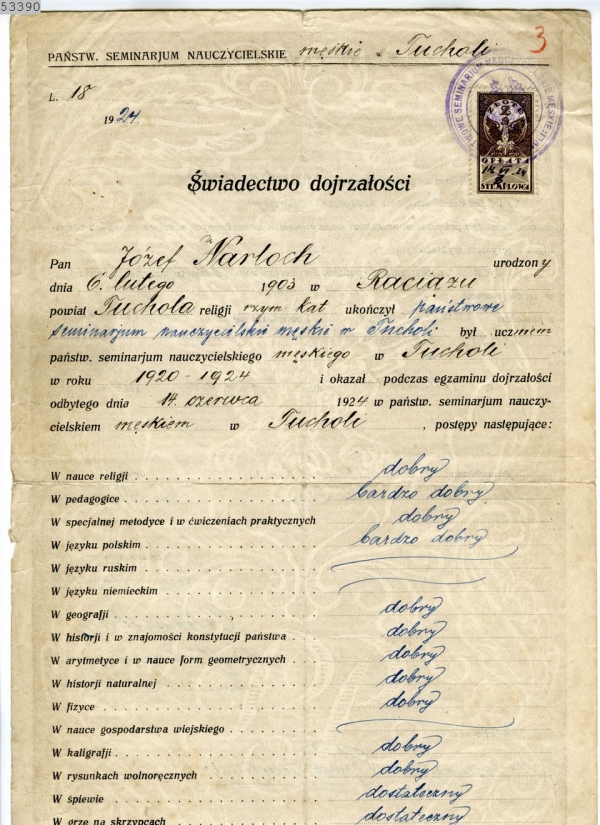 53390
PAŃSTW. SEMINARJUM NAUCZYCIELSKIE męskie w Tucholi
3
L. 18
1924
ZŁOTE
2
OPŁATA
14 VI 24
STEMPLOWA
Świadectwo dojrzałości
Pan Józef Narloch urodzony
dnia 6. lutego 1903 w Raciążu
powiat Tuchola religji rzym. kat ukończył państwowe
seminarjum nauczycielskie męskie w Tucholi był uczniem
państw. seminarjum nauczycielskiego męskiego w Tucholi
w roku 1920-1924 i okazał podczas egzaminu dojrzałości
odbytego dnia 14. czerwca 1924 w państw. seminarjum nauczy-
cielskiem męskiem w Tucholi, postępy następujące:
W nauce religji dobry
W pedagogice bardzo dobry
W specjalnej metodyce i w ćwiczeniach praktycznych dobry
W języku polskim bardzo dobry
W języku ruskim
W języku niemieckim
W geografji dobry
W historji i w znajomości konstytucji państwa dobry
W arytmetyce i w nauce form geometrycznych dobry
W historji naturalnej dobry
W fizyce dobry
W nauce gospodarstwa wiejskiego
W kaligrafji dobry
W rysunkach wolnoręcznych dobry
W śpiewie dostateczny
W grze na skrzypcach dostateczny